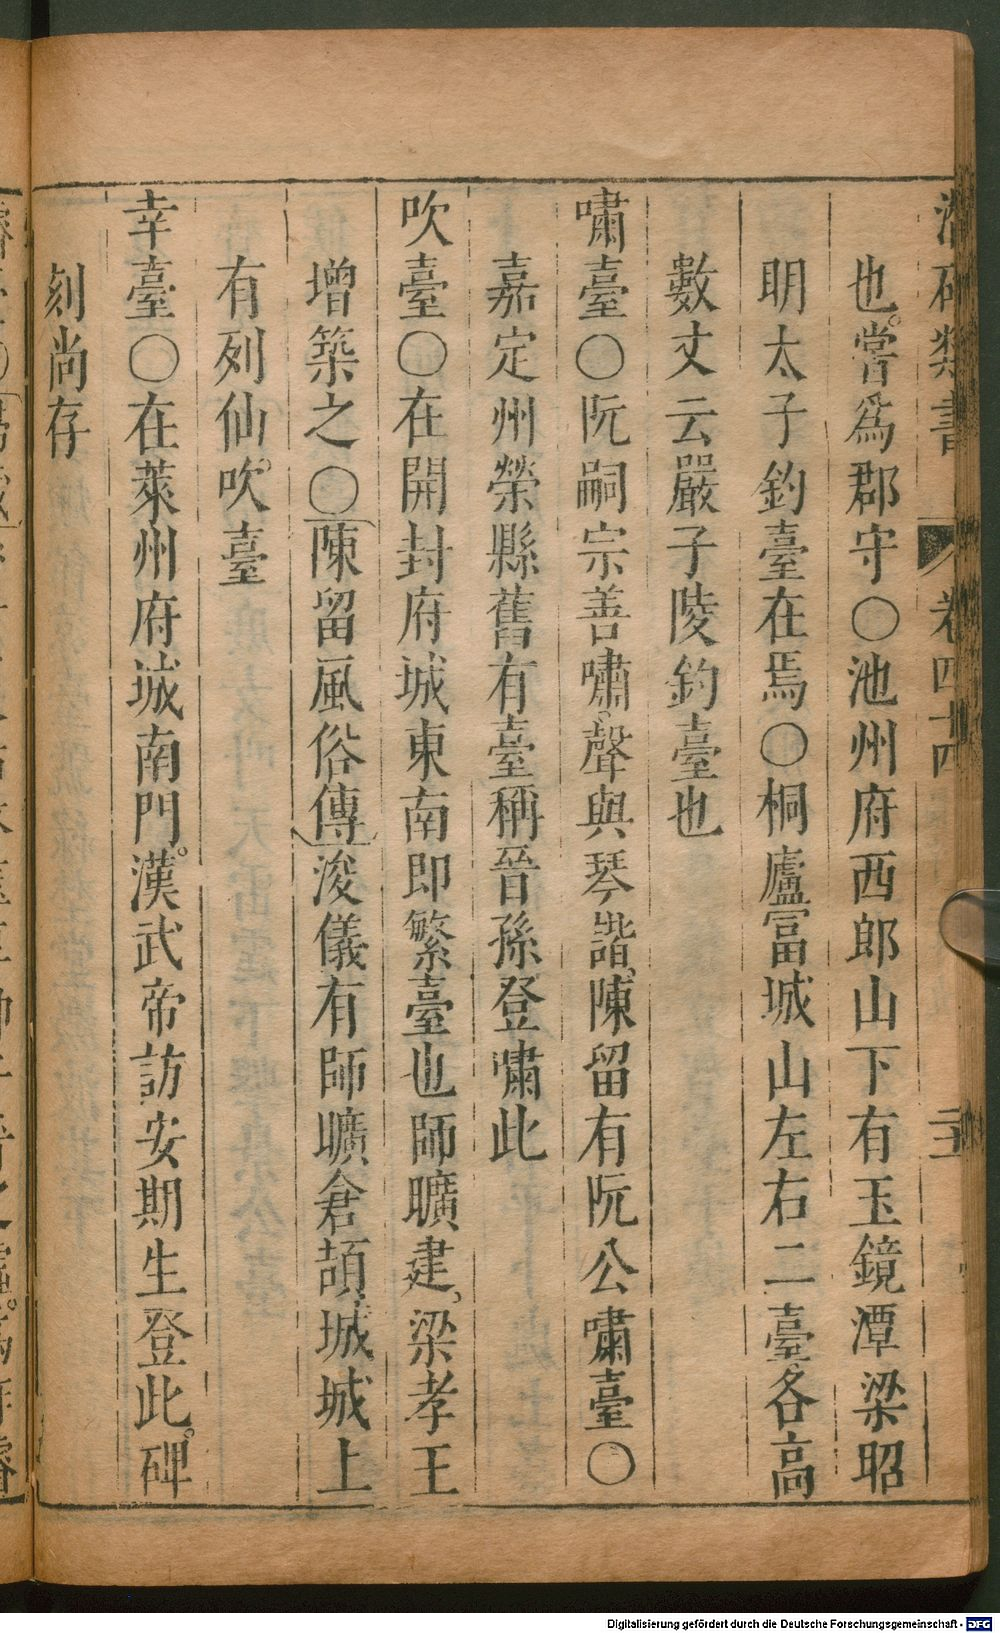 潛確類書 卷四十四 二十
也。嘗爲郡守〇池州府西郎山下有玉鏡潭梁昭
明太子釣臺在焉〇桐廬富城山左右二臺。各高
數丈云嚴子陵釣臺也
嘯臺〇阮嗣宗善嘯。聲與琴諧。陳留有阮公嘯臺〇
嘉定州榮縣舊有臺稱晉孫登嘯此
吹臺〇在開封府城東南即繁臺也師曠建。梁孝王
增築之〇陳留風俗傳浚儀有師曠倉頡城。城上
有列仙。吹臺
幸臺〇在萊州府城南門。漢武帝訪安期生登此。碑
刻尚存
Digitalisierung gefördert durch die Deutsche Forschungsgemeinschaft - DFG